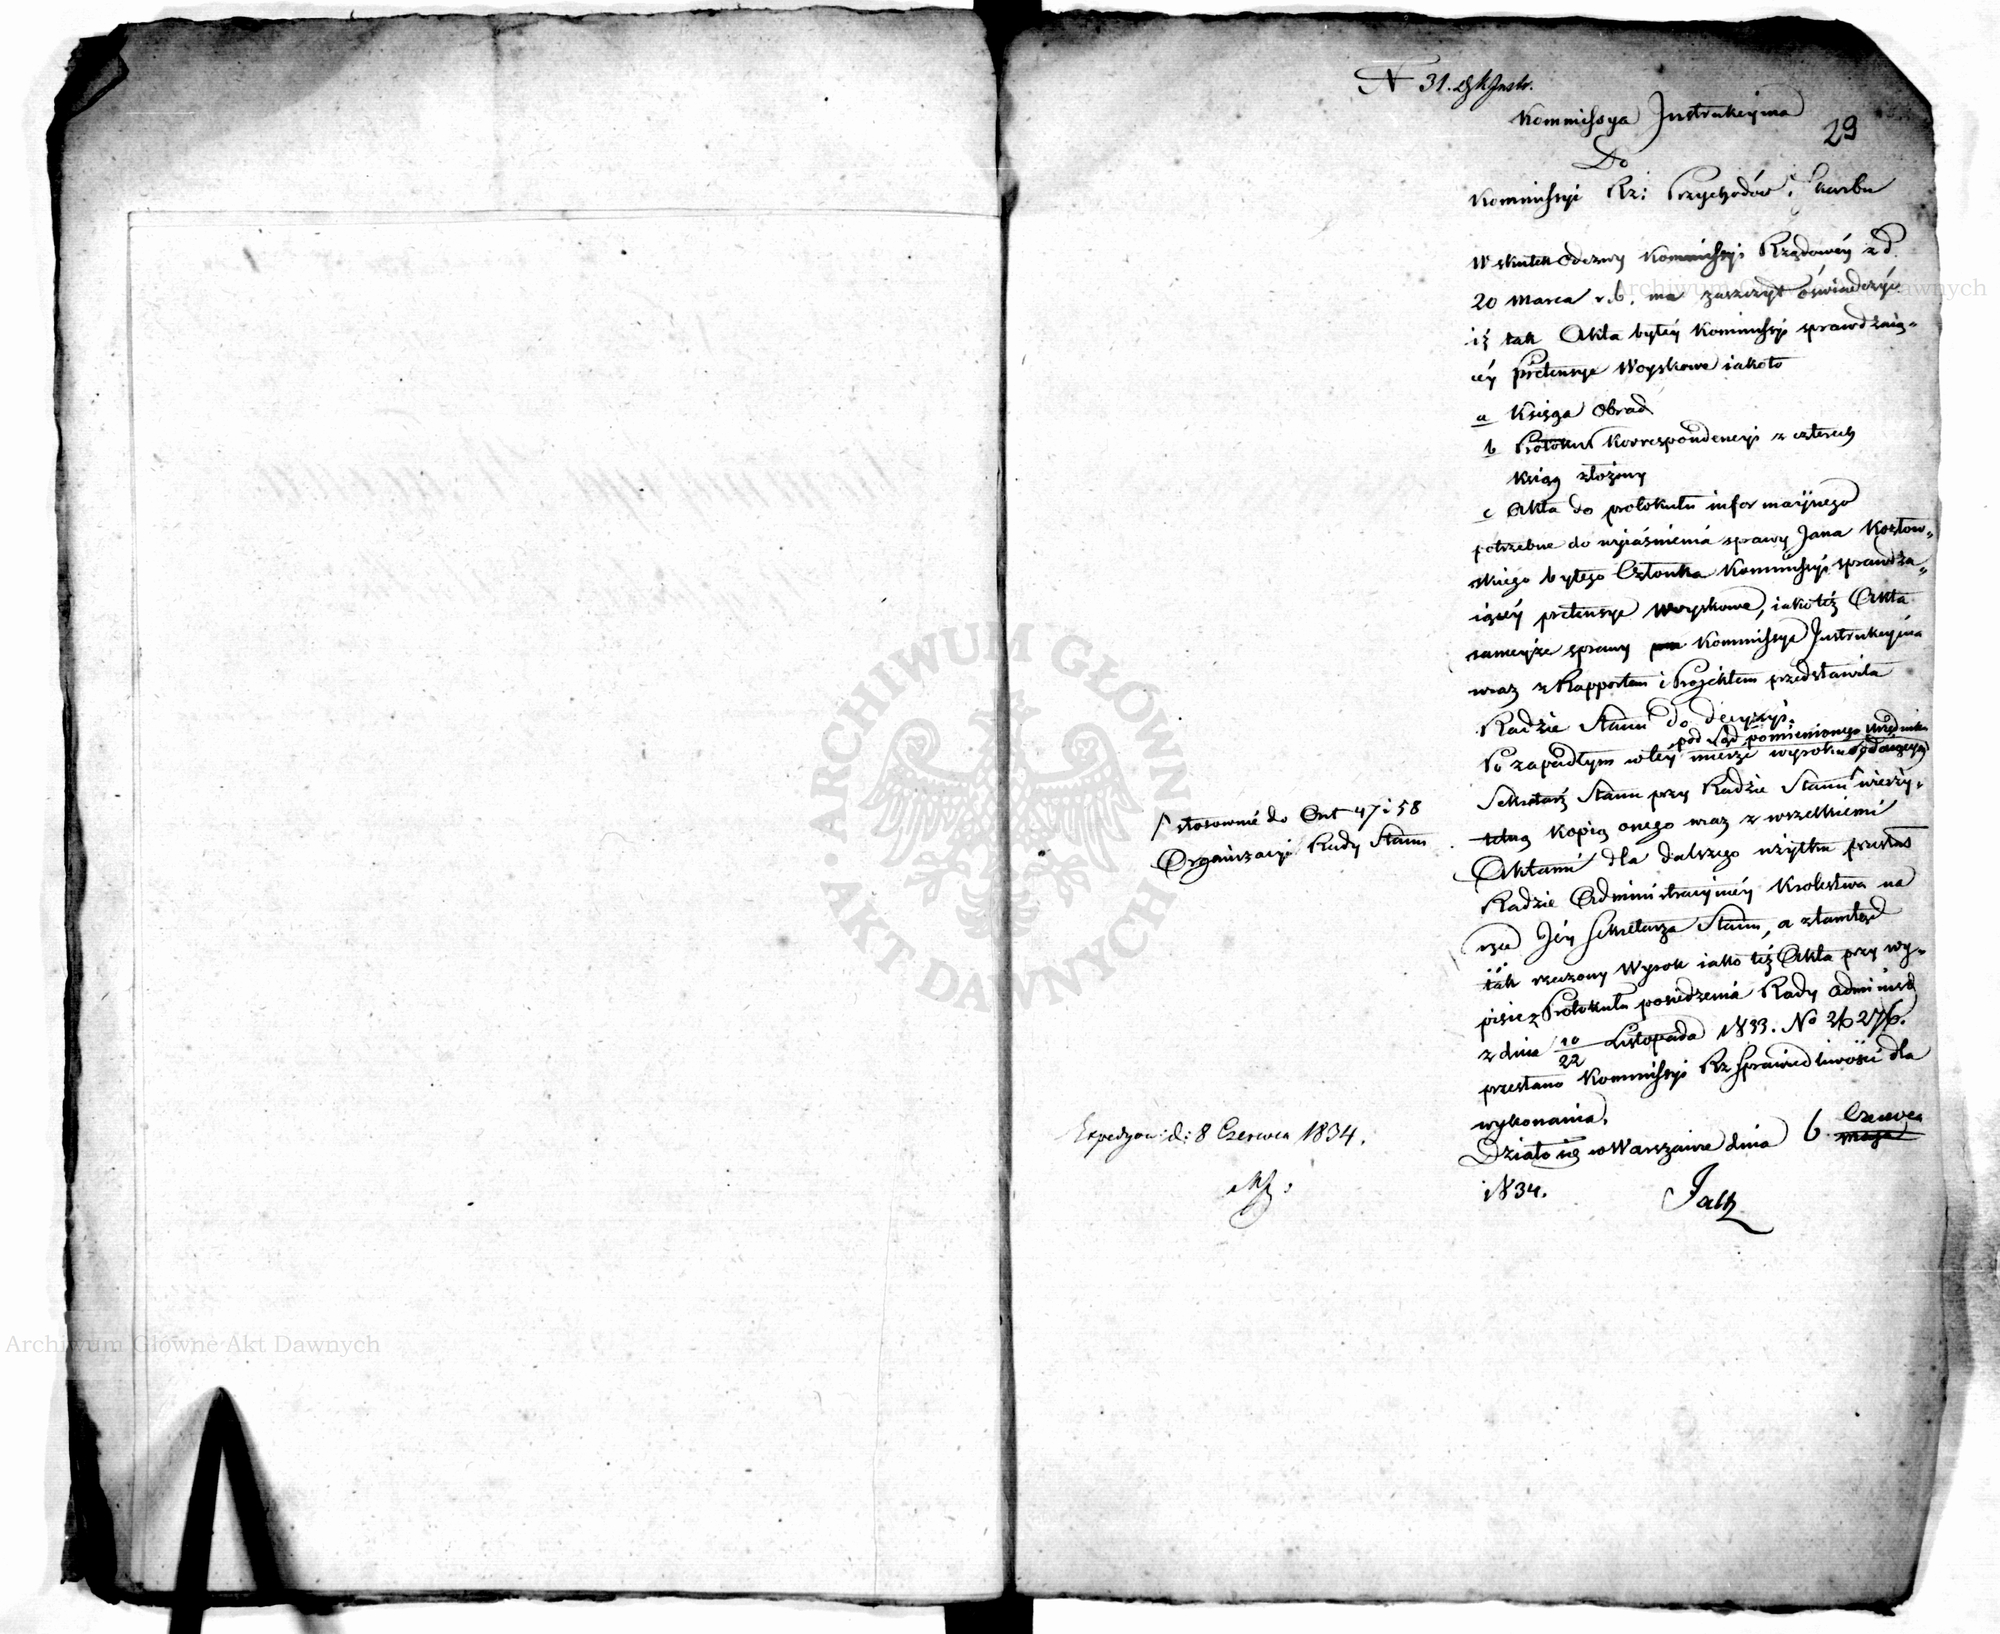 N 31. Instr.
29
Kommissya Instrukcyina
Do
Kommissyi Rz: Przychodów i Skarbu
W skutek odezwy Kommissyi Rządowéy z d.
20 Marca r. b. ma zaszczyt oświadczyć
iż tak Akta byłéy Kommissyi sprawdzaią„
céy pretensye Woyskowe iakoto
a Księga Obrad
b Protokuł Korrespondencyi z czterech
ksiąg złożony
c Akta do protokułu informacyinego
potrzebne do wyiaśnienia sprawy Jana Kozłow„
skiego byłego Członka Kommissyi sprawdza„
iącéy pretensye Woyskowe, iakoteż Akta
saméyże sprawy Kommissya Instrukcyina
wraz z Rapportem i Projektem przedstawiła
Radzie Stanu do decyzyi.
pod Sąd pomienionego urzędnika
Po zapadłym w téy mierze wyroku oddaiącym
Sekretarz Stanu przy Radzie Stanu / wierzy„
telną kopią onego wraz z wszelkiemi
Aktami dla dalszego użytku przesłał
Radzie Administracyinéy Królestwa na
ręce Jéy Sekretarza Stanu, a ztamtąd
tak rzeczony Wyrok iako też Akta przy wy„
pisie z Protokułu posiedzenia Rady Administ
z dnia 10/22 Listopada 1833. No 26276.
przesłano Kommissyi Rz Sprawiedliwości dla
wykonania.
Działo się w Warszawie dnia 6 Czerwca
maja
1834.
Jalk
/ stosownie do Art 47 i 58
Organizacyi Rady Stanu
Expedyow: d: 8 Czerwca 1834.
ARCHIWUM GŁÓWNE · AKT DAWNYCH ·
Archiwum Główne Akt Dawnych
Archiwum Główne Akt Dawnych